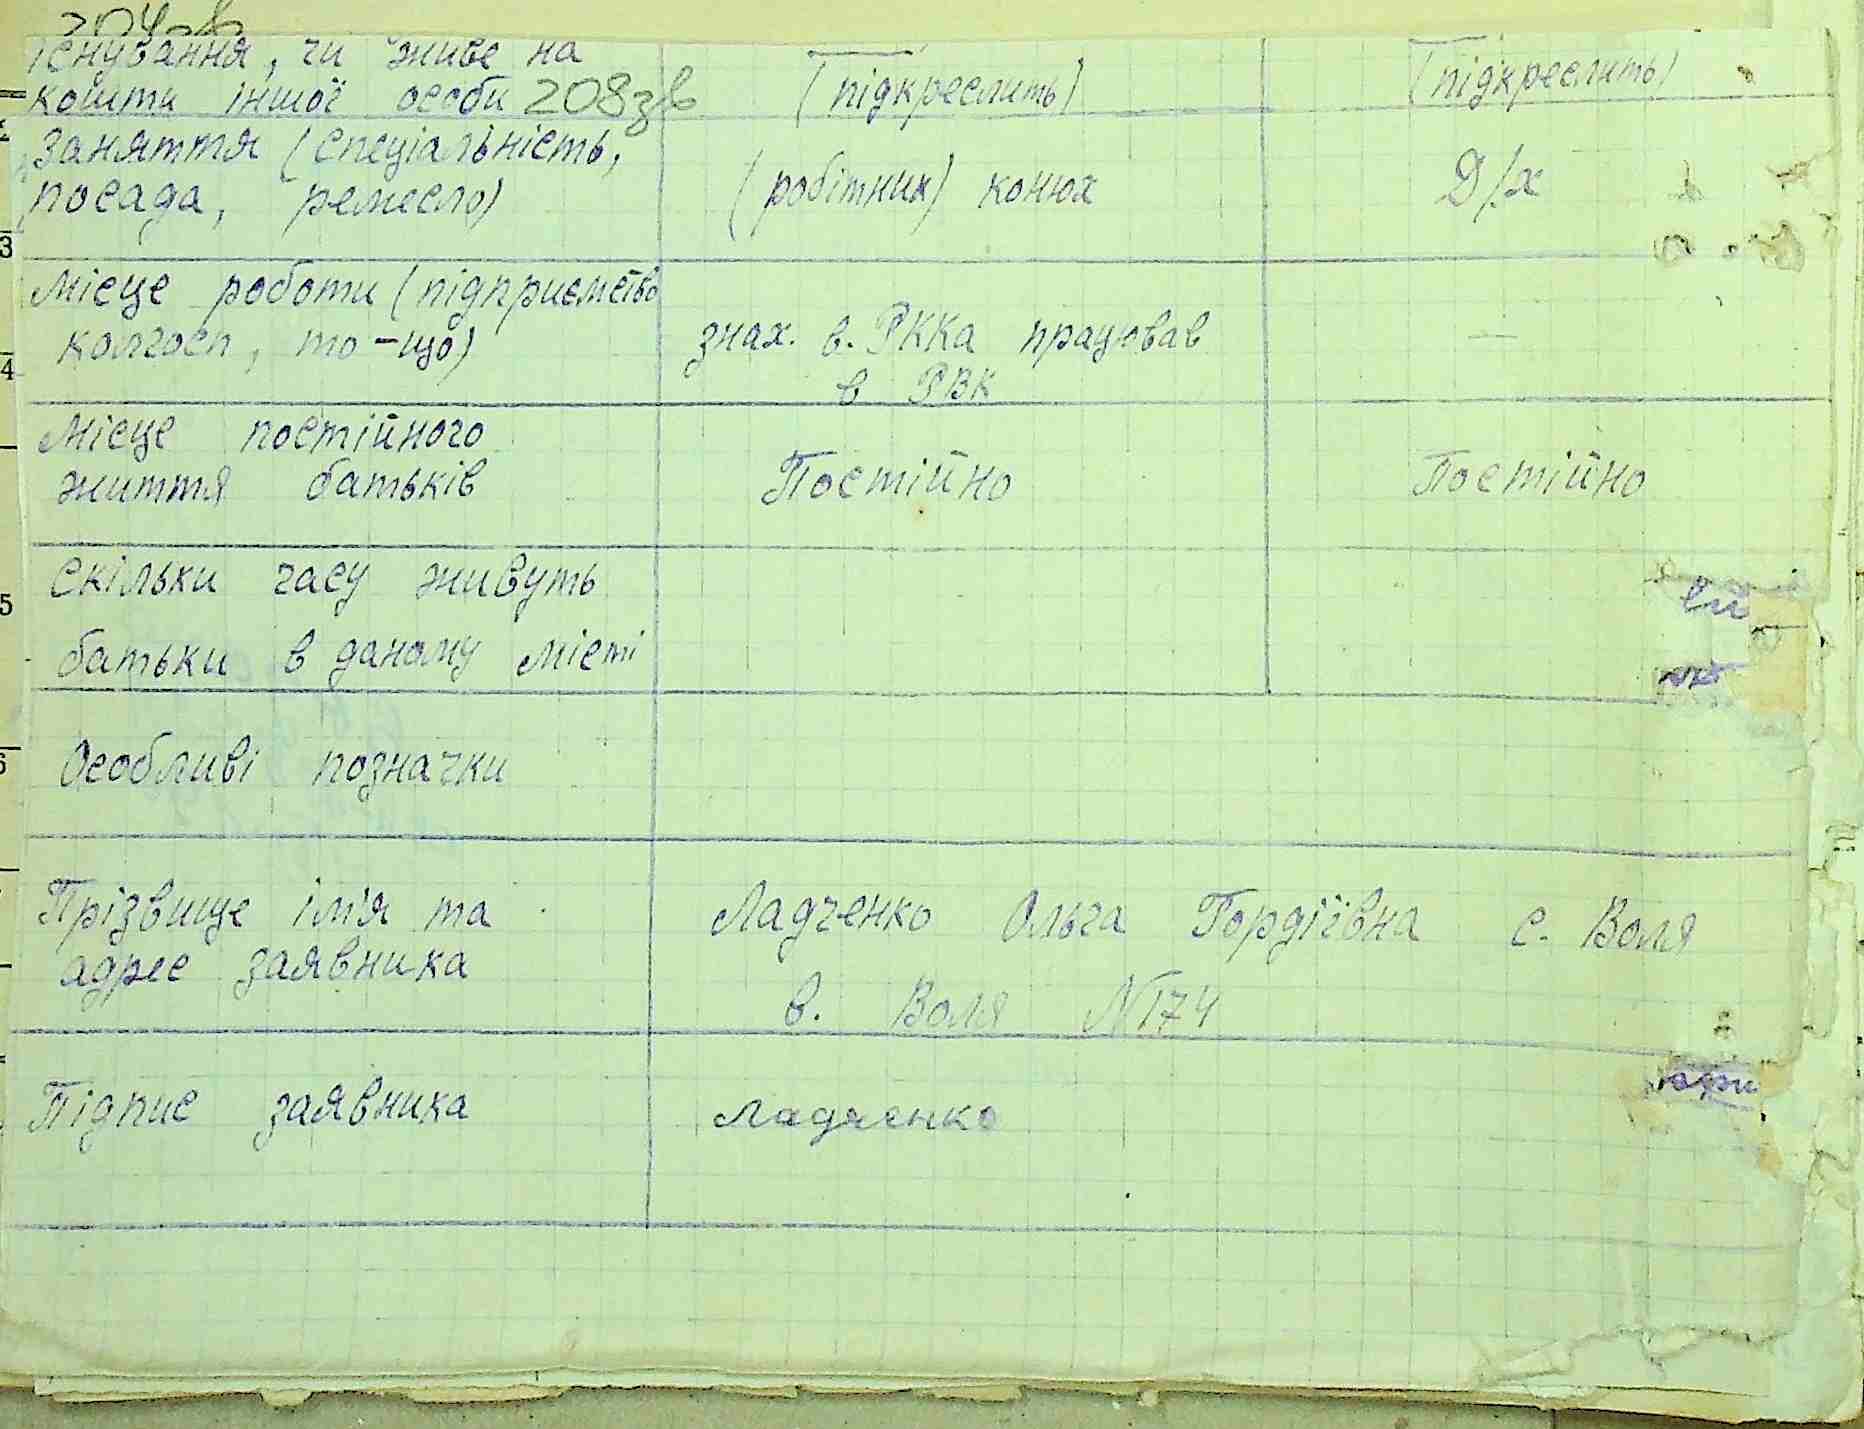 існування, чи живе на
кошти іншої особи 208зв
(підкреслить)
(підкреслить)
Заняття (спеціальність,
посада, ремесло)
(робітник) конюх
Д/х
Місце роботи (підприємство
колгосп, то-що)
знах. в. РККА працював
в РВК
—
Місце постійного
життя батьків
Постійно
Постійно
Скільки часу живуть
батьки в даному місті
Особливі позначки
Прізвище ім'я та
адрес заявника
Ладченко Ольга Гордіївна с. Воля
в. Воля №174
Підпис заявника
Ладченко
3
4
5
6